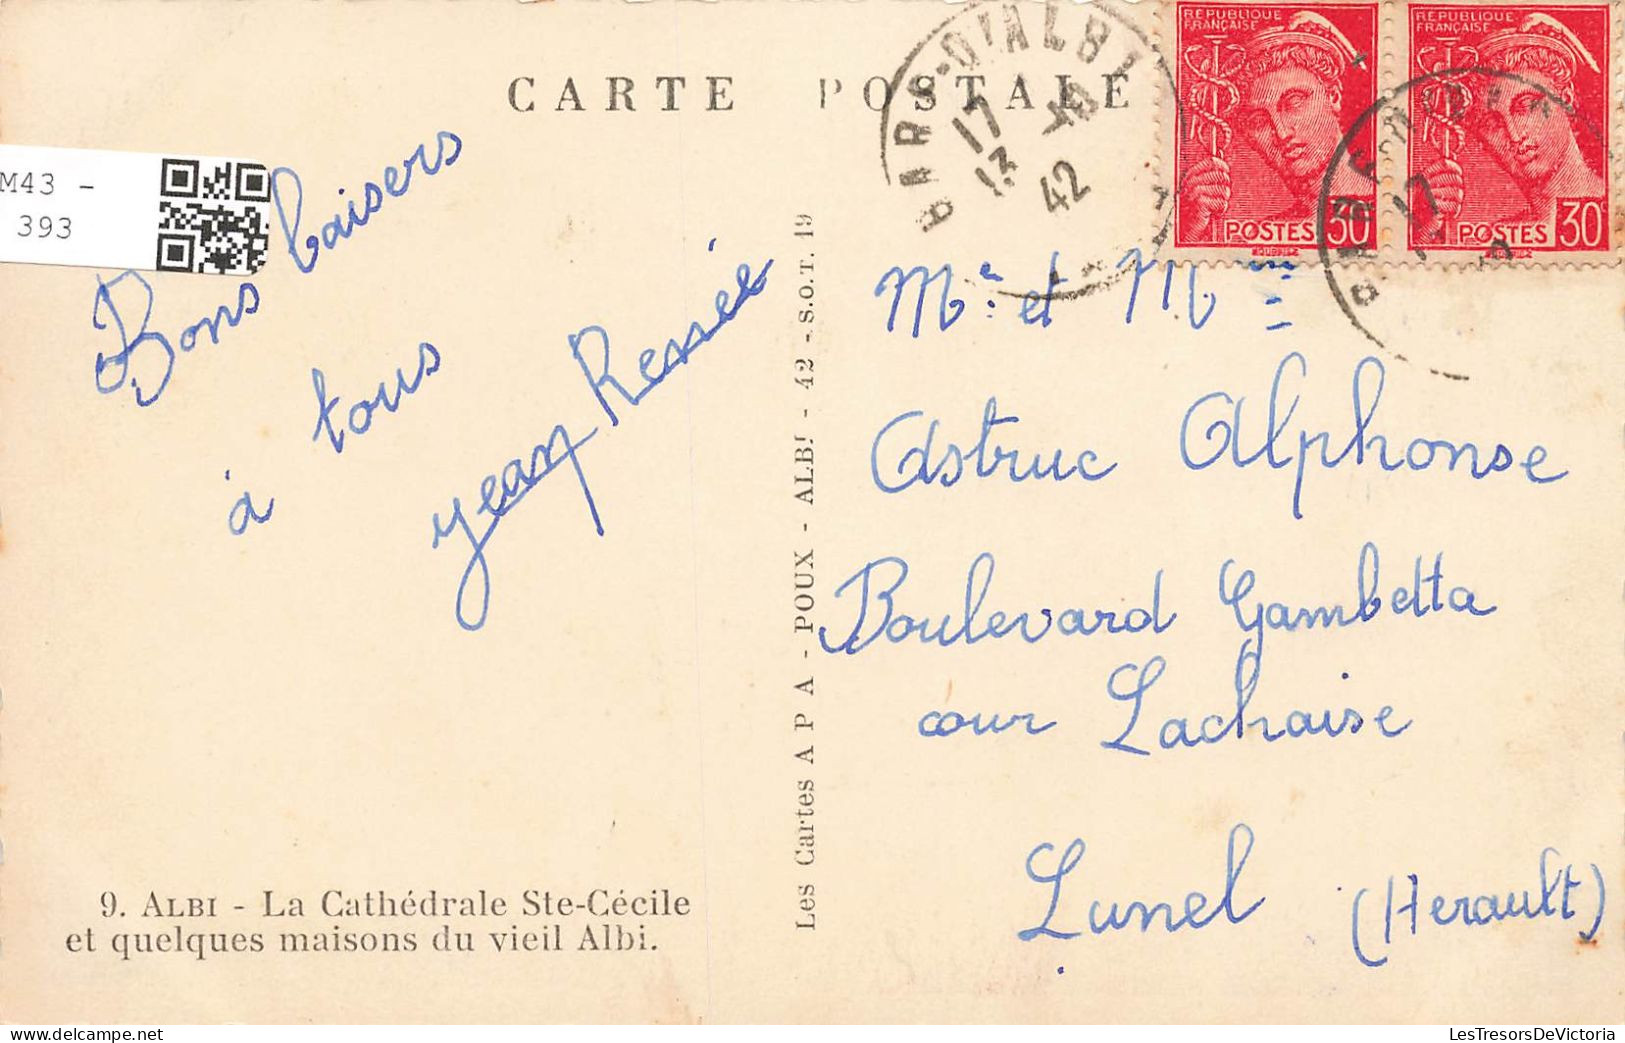 CARTE POSTALE
M43 -
393
Bons baisers
à tous
Jean
9. ALBI - La Cathédrale Ste-Cécile
et quelques maisons du vieil Albi.
Les Cartes A P A - POUX - ALBI - 42 - S.O.T. 19
17
13
42
REPUBLIQUE
FRANÇAISE
POSTES 30
REPUBLIQUE
FRANÇAISE
POSTES 30
17
Mr et Mme
Astruc Alphonse
Boulevard Gambetta
cour Lachaise
Lunel (Herault)
LesTresorsDeVictoria.com